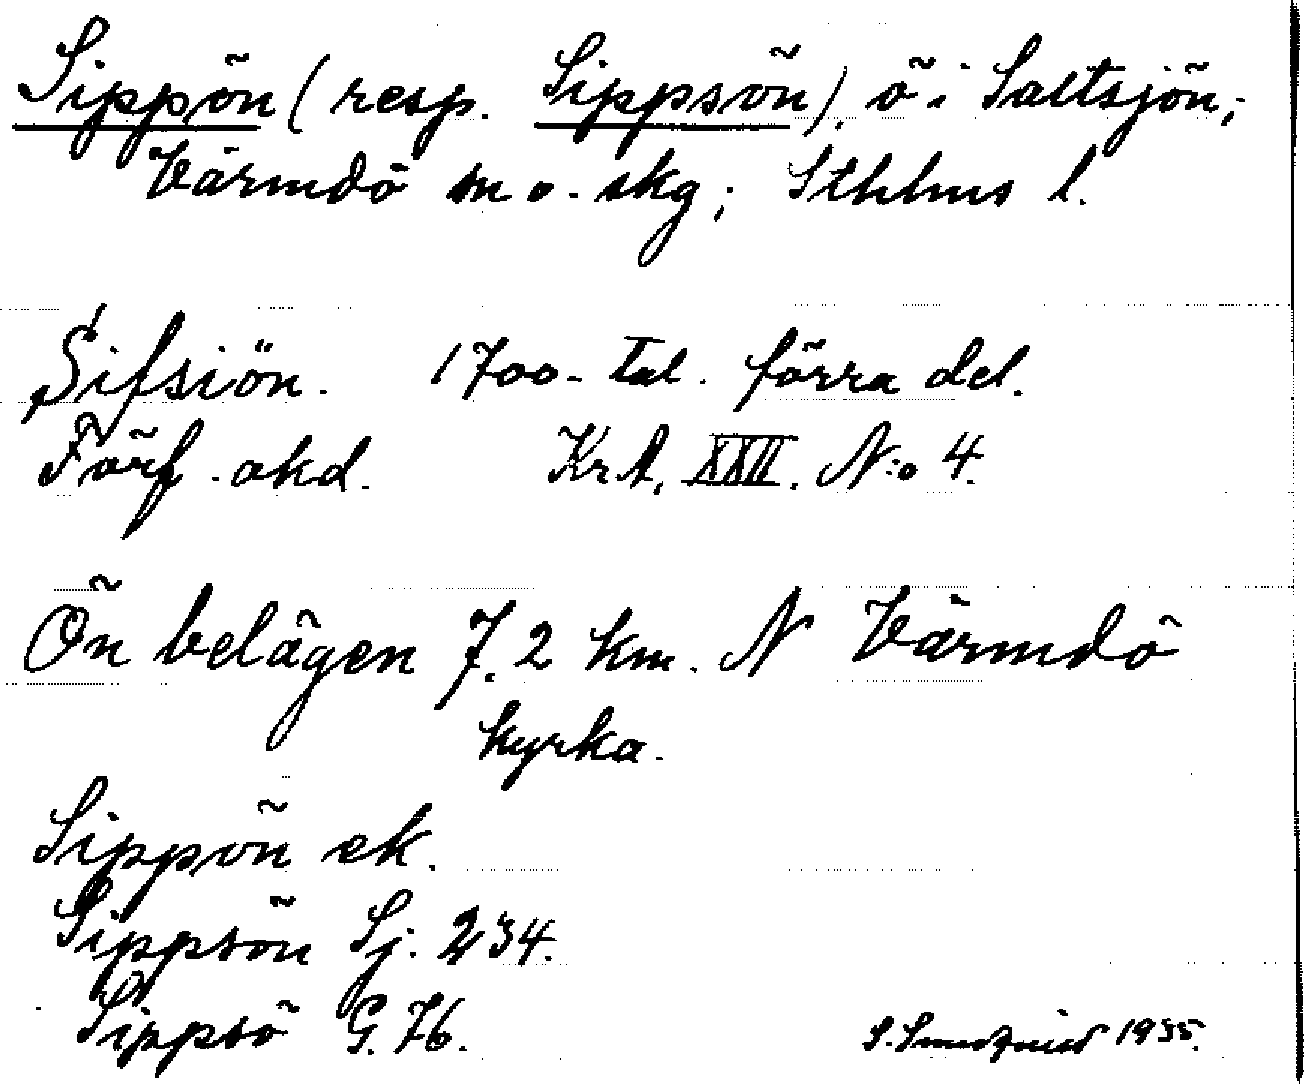 Sippön (resp. Sippsön), ö i Saltsjön,
Värmdö sn o. skg; Sthlms l.
Sifsiön. 1700-tal. förra del.
Förf. okd. Kr.A. XXII. N:o 4.
Ön belägen 7.2 km. N Värmdö
kyrka.
Sippön ek.
Sippsön Sj. 234.
Sippsö G. 76.
S. 1935.